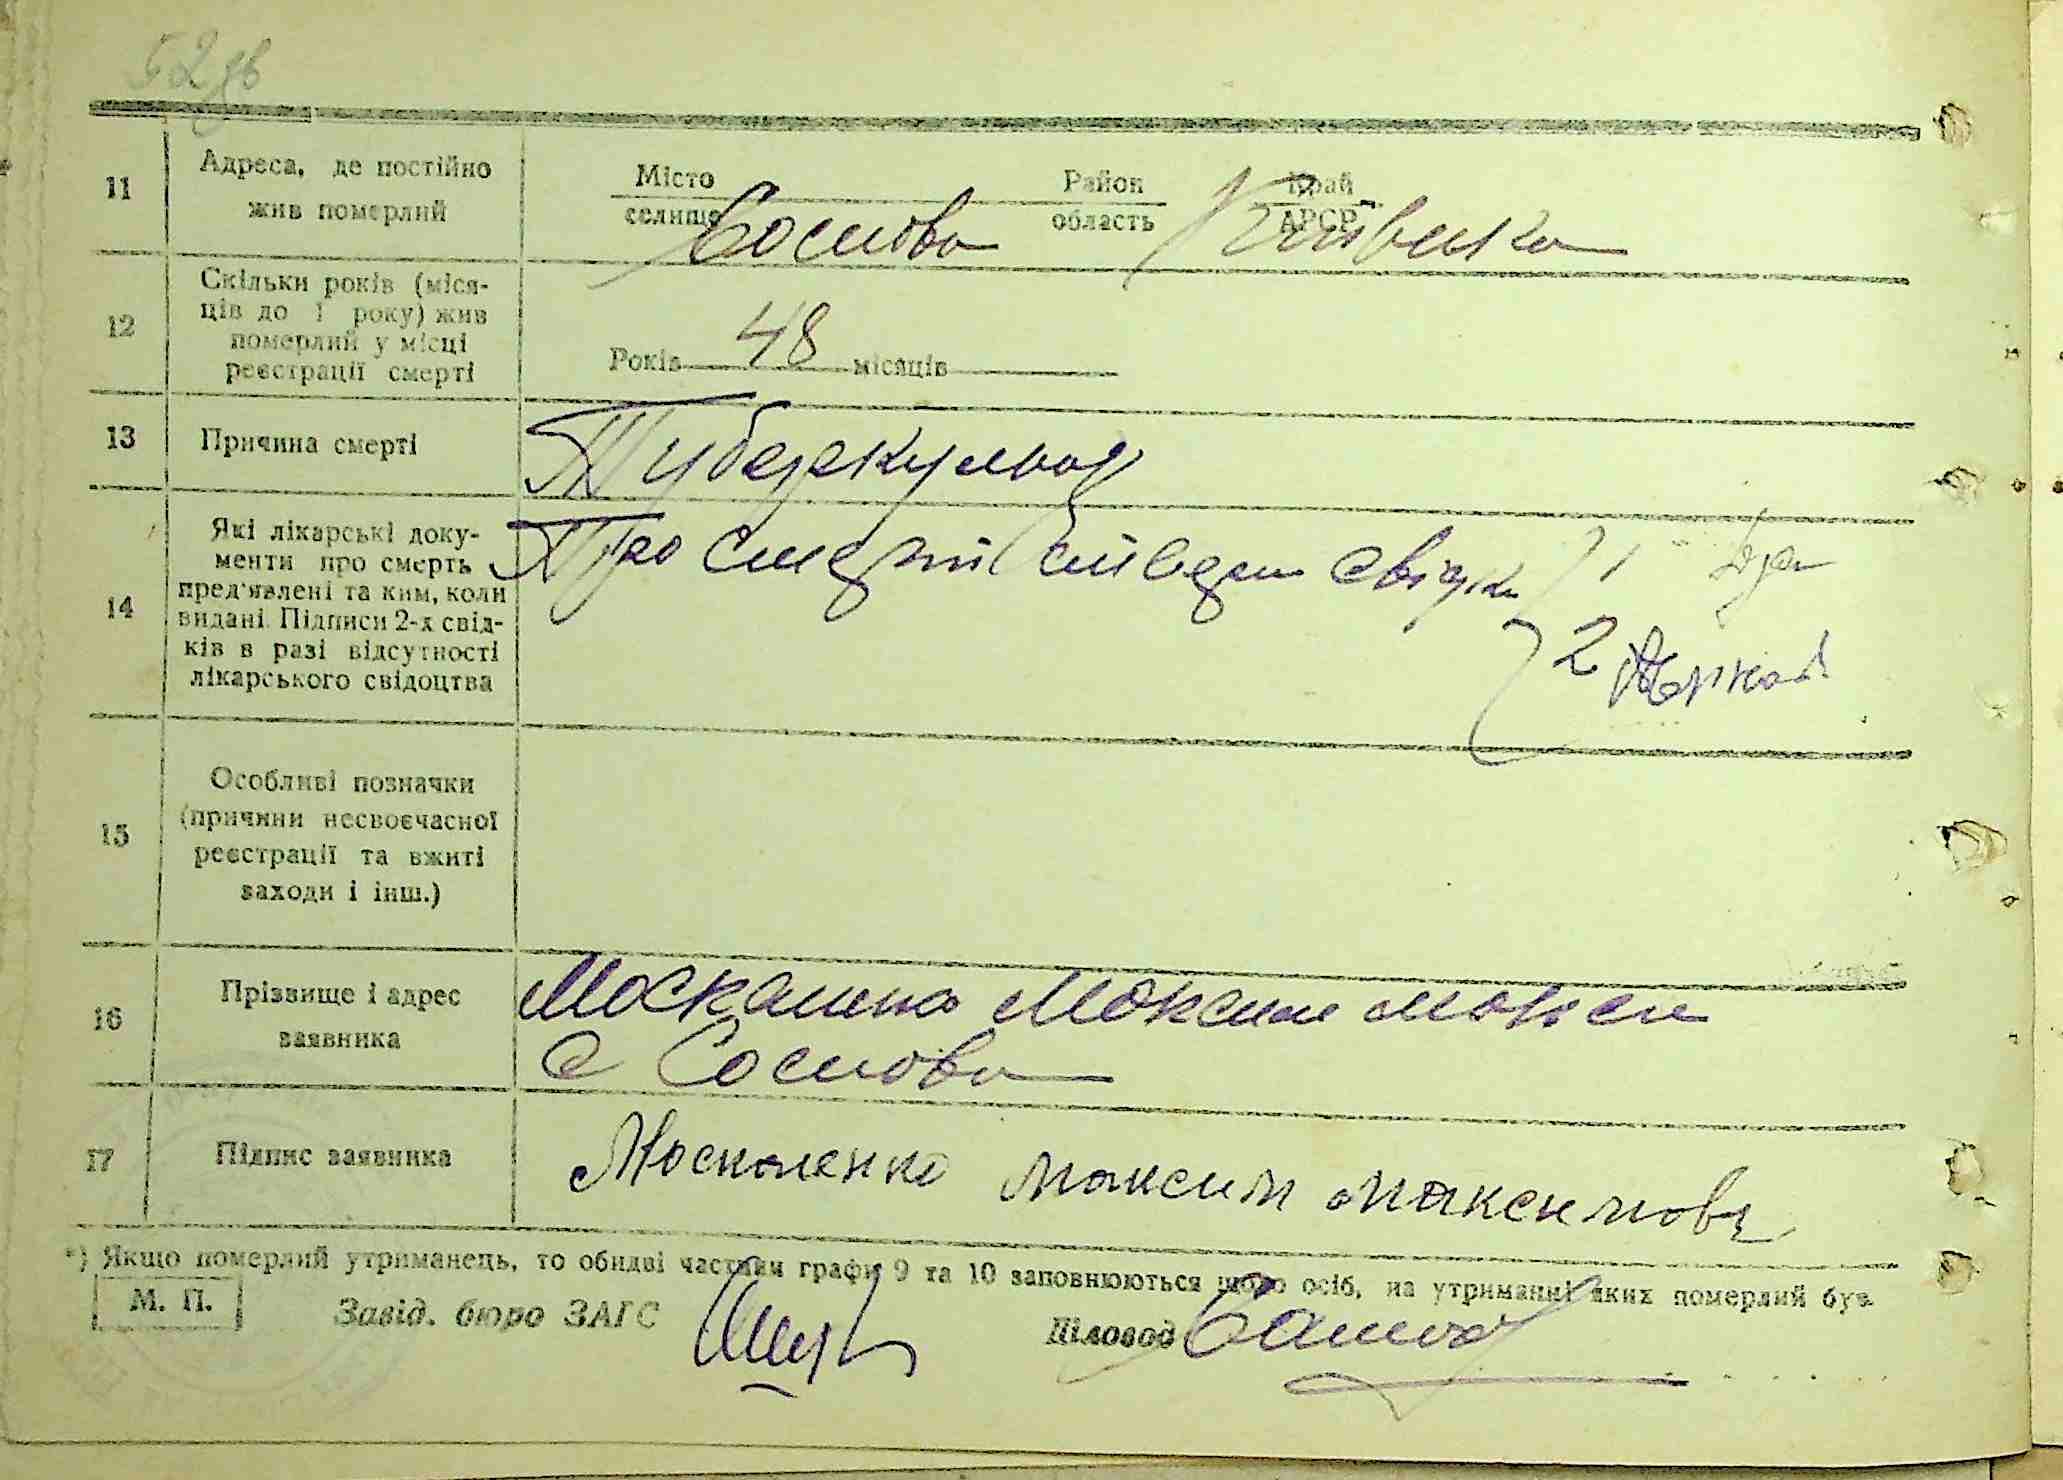 52зв
11
Адреса, де постійно
жив померлий
Місто
селище
Соснова
Район
область
Край
АРСР
Київська
12
Скільки років (міся-
ців до 1 року) жив
померлий у місці
реєстрації смерті
Років 48 місяців
13
Причина смерті
Туберкульоз
14
Які лікарські доку-
менти про смерть
пред'явлені та ким, коли
видані. Підписи 2-х свід-
ків в разі відсутності
лікарського свідоцтва
Про смерть свідки 1
2
15
Особливі позначки
(причини несвоєчасної
реєстрації та вжиті
заходи і інш.)
16
Прізвище і адрес
заявника
Москаленко Максим
с Соснова
17
Підпис заявника
Москаленко Максим Максимов
*) Якщо померлий утриманець, то обидві частини графи 9 та 10 заповнюються щодо осіб, на утриманні яких померлий був
М. П.
Завід. бюро ЗАГС
Діловод